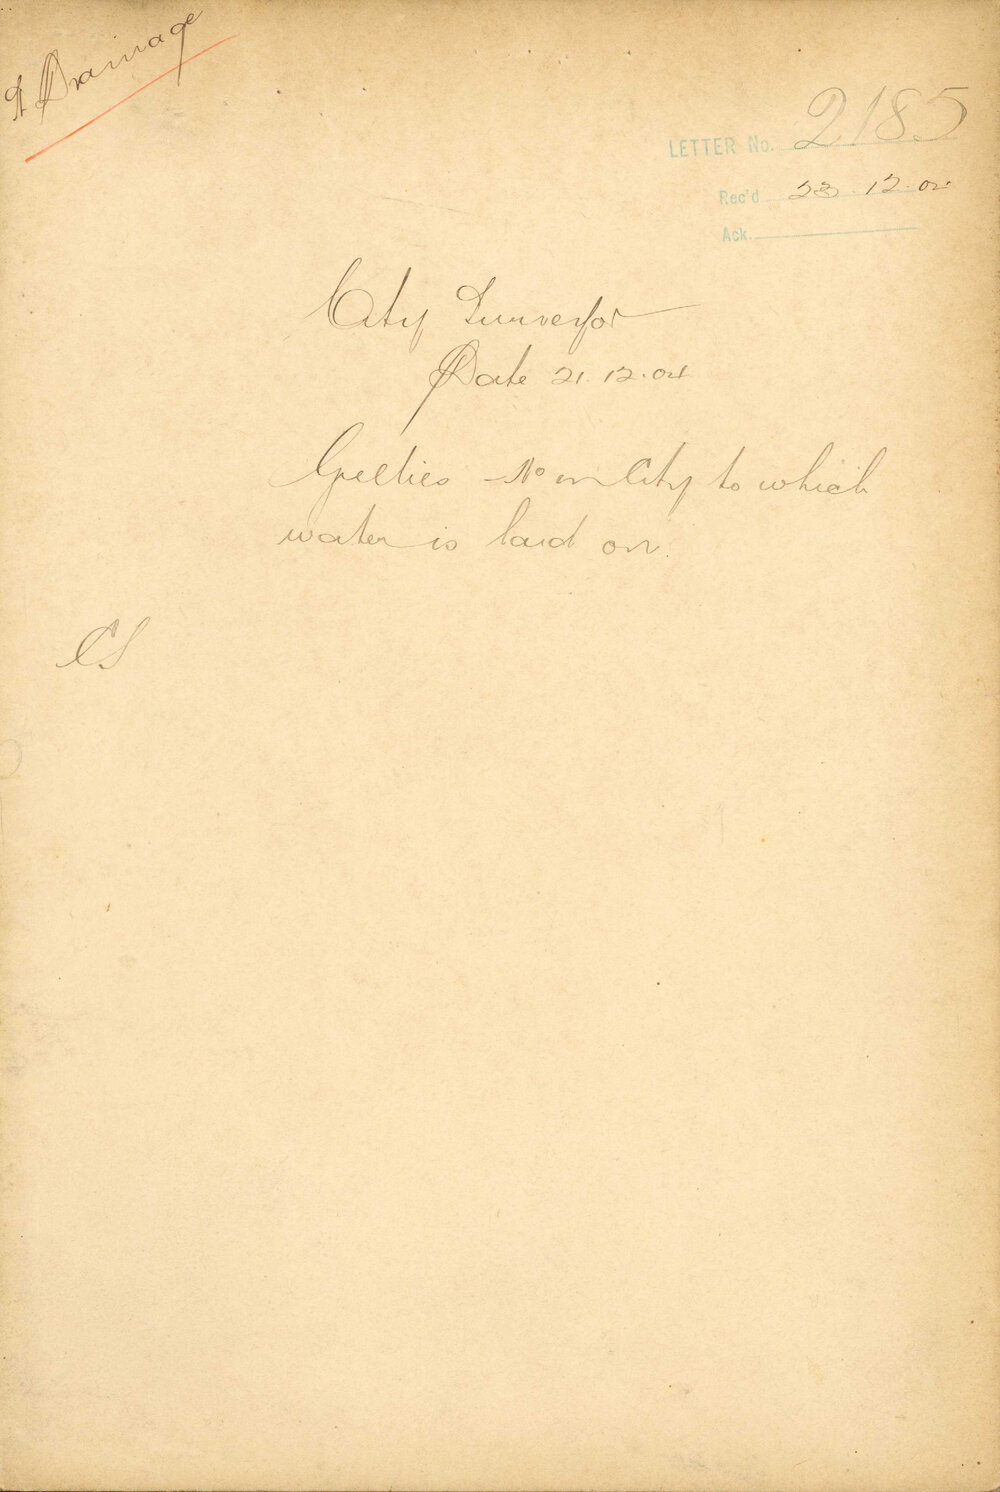 Drainage
LETTER No. 2185
Rec'd 23.12.04
Ack.
City Surveyor
Date 21.12.04
Gullies No in City to which
water is laid on.
CS